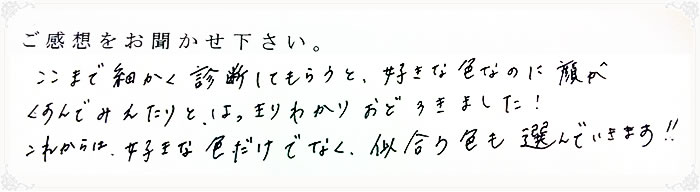 ご感想をお聞かせ下さい。
ここまで細かく診断してもらうと、好きな色なのに顔が
くすんでみえたりと、はっきりわかりおどろきました!
これからは、好きな色だけでなく、似合う色も選んでいきます!!